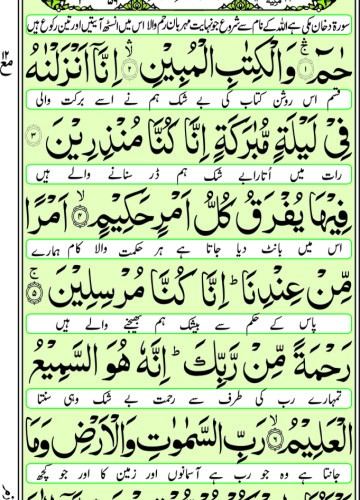 سورۃ دخان مکی ہے اللہ کے نام سے شروع جو نہایت مہربان رحم والا اس میں انسٹھ آیتیں اور تین رکوع ہیں
حٰمٓ ۚۛ۝۱ وَالْكِتٰبِ الْمُبِيْنِ ۙۛ۝۲ اِنَّاۤ اَنْزَلْنٰهُ
قسم اس روشن کتاب کی بے شک ہم نے اسے برکت والی
فِيْ لَيْلَةٍ مُّبٰرَكَةٍ اِنَّا كُنَّا مُنْذِرِيْنَ ۝۳
رات میں اُتارا بے شک ہم ڈر سنانے والے ہیں
فِيْهَا يُفْرَقُ كُلُّ اَمْرٍ حَكِيْمٍ ۙ۝۴ اَمْرًا
اس میں بانٹ دیا جاتا ہے ہر حکمت والا کام ہمارے
مِّنْ عِنْدِنَا ؕ اِنَّا كُنَّا مُرْسِلِيْنَ ۚ۝۵
پاس کے حکم سے بیشک ہم بھیجنے والے ہیں
رَحْمَةً مِّنْ رَّبِّكَ ؕ اِنَّهٗ هُوَ السَّمِيْعُ
تمہارے رب کی طرف سے رحمت بے شک وہی سنتا
الْعَلِيْمُ ۙ۝۶ رَبِّ السَّمٰوٰتِ وَالْاَرْضِ وَمَا
جانتا ہے وہ جو رب ہے آسمانوں اور زمین کا اور جو کچھ